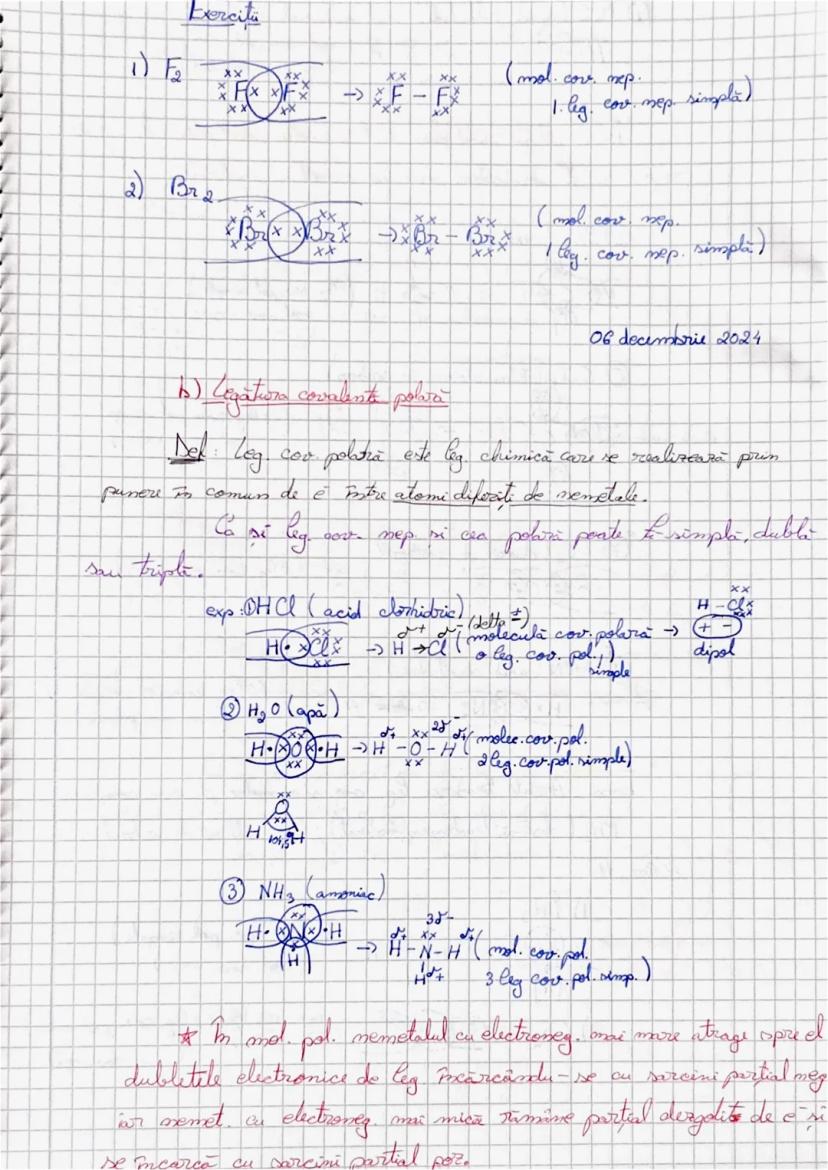 Exerciții
1) F2
F F → F – F (mol. cov. nep.
1. leg. cov. nep. simplă)
2) Br2
Br Br → Br – Br (mol. cov. nep.
1 leg. cov. nep. simplă)
06 decembrie 2024
b) Legătura covalentă polară
Def: Leg. cov. polară este leg. chimică care se realizează prin
punere în comun de e⁻ între atomi diferiți de nemetale.
Ca și leg. cov. nep și cea polară poate fi simplă, dublă
sau triplă.
exp: ① HCl (acid clorhidric) (delta ±) H – Cl
H • x Cl → H δ+ → Cl δ- (moleculă cov. polară → + -
o leg. cov. pol.) dipol
simple
② H2O (apă)
H • x O x • H → H δ+ – O 2δ- – H δ+ (molec. cov. pol.
2 leg. cov. pol. simple)
O
H 104,5° H
③ NH3 (amoniac)
3δ-
H • x N x • H → H δ+ – N – H δ+ (mol. cov. pol.
H H δ+ 3 leg cov. pol. simp.)
* În mol. pol. nemetalul cu electroneg. mai mare atrage spre el
dubletele electronice de leg. încărcându-se cu sarcini parțial neg
iar nemet. cu electroneg. mai mică rămâne parțial dezgolit de e⁻ și
se încarcă cu sarcini parțial poz.